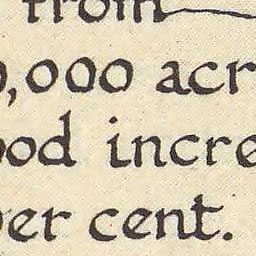 from
0,000 acr
ood incre
per cent.